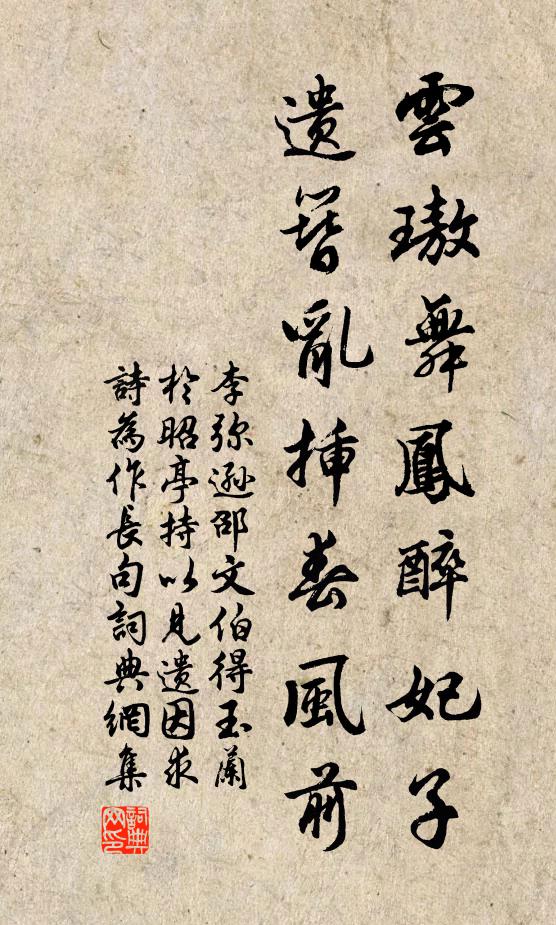 雲璈舞鳳醉妃子
遺簪亂插春風前
李弥遜邵文伯得玉蘭
於昭亭持以見遺因求
詩為作長句詞典網集
詞典网印